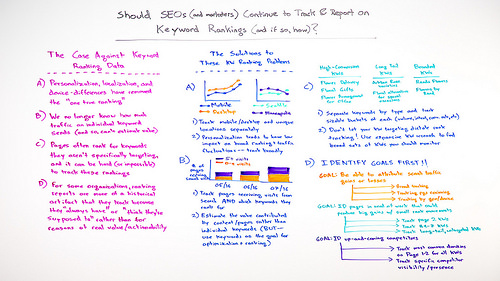 Should SEOs (and marketers) Continue to Track & Report on
Keyword Rankings (and if so, how)?
The Case Against Keyword
Ranking Data
A) Personalization, localization, and
device differences have removed
the "one true ranking"
B) We no longer know how much
traffic an individual keyword
sends (and so, can't estimate value)
C) Pages often rank for keywords
they aren't specifically targeting,
and it can be hard (or impossible)
to track those rankings
D) For some organizations, ranking
reports are more of a historical
artifact that they track because
they "always have" or "think they're
supposed to" rather than for
reasons of real value/actionability
The Solutions to
These KW Ranking Problems
A)
Mobile
Desktop
Seattle
Minneapolis
1) Track mobile/desktop and unique
locations separately
2) Personalization tends to have low
impact on broad ranking & traffic
fluctuations - track broadly
B)
# of
pages
receiving
search visits
5+ visits
0-5 visits
05/16
06/16
07/16
1) Track pages receiving visits from
search AND what keywords they
rank for
2) Estimate the value contributed
by content/pages rather than
individual keywords (BUT-
use keywords as the goal for
optimization & ranking)
C)
High-Conversion
KWs
Long Tail
KWs
Branded
KWs
Flower Delivery
Floral Gifts
Flower Arrangements
for Office
1) Separate keywords by type and track
sizable buckets of each
2) Don't let your KW targeting dictate rank
tracking! Use expansive KW research to find
broad sets of KWs you should monitor
D) IDENTIFY GOALS FIRST!!
GOAL: Be able to attribute search traffic
gains or losses
Broad tracking
Tracking by geo/device
GOAL: ID pages in need of work that could
produce big gains w/ small rank movements
Track page 2 KWs
GOAL: ID up-and-coming competitors
Track most common domains
on Page 1-2 for all KWs
Track specific competitor
visibility/presence